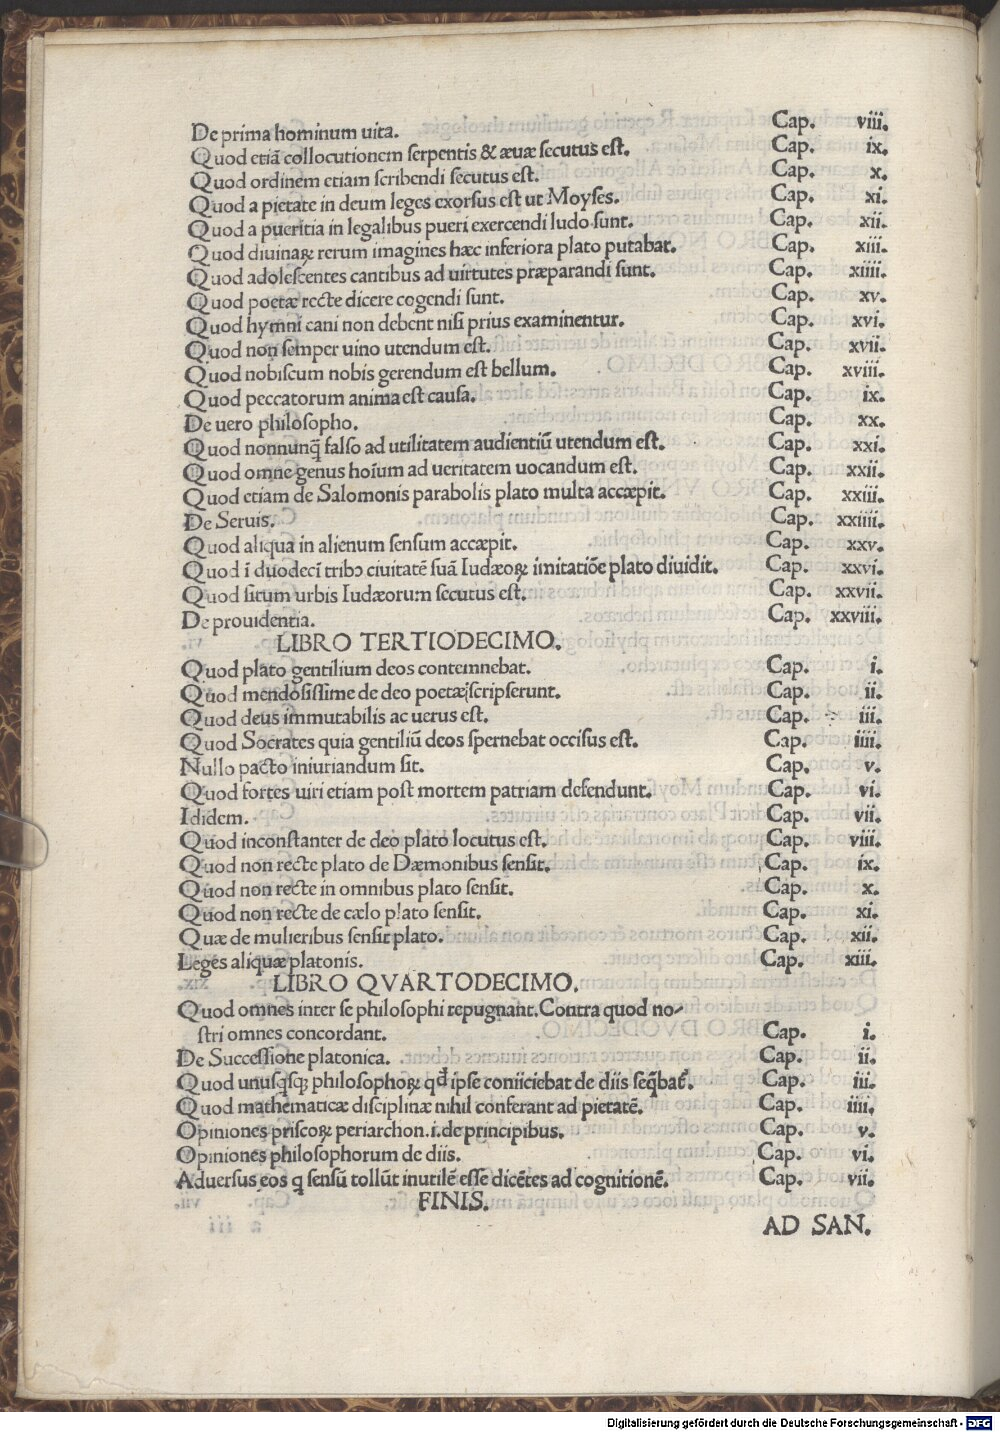 De prima hominum uita. Cap. viii.
Quod etiã collocutionem serpentis & æuæ secutus est. Cap. ix.
Quod ordinem etiam scribendi secutus est. Cap. x.
Quod a pietate in deum leges exorsus est ut Moyses. Cap. xi.
Quod a pueritia in legalibus pueri exercendi ludo sunt. Cap. xii.
Quod diuinaꝝ rerum imagines hæc inferiora plato putabat. Cap. xiii.
Quod adolescentes cantibus ad uirtutes præparandi sunt. Cap. xiiii.
Quod poetæ recte dicere cogendi sunt. Cap. xv.
Quod hymni cani non debent nisi prius examinentur. Cap. xvi.
Quod non semper uino utendum est. Cap. xvii.
Quod nobiscum nobis gerendum est bellum. Cap. xviii.
Quod peccatorum anima est causa. Cap. ix.
De uero philosopho. Cap. xx.
Quod nonnunq̃ falso ad utilitatem audientiũ utendum est. Cap. xxi.
Quod omne genus hoĩum ad ueritatem uocandum est. Cap. xxii.
Quod etiam de Salomonis parabolis plato multa accæpit. Cap. xxiii.
De Seruis. Cap. xxiiii.
Quod aliqua in alienum sensum accæpit. Cap. xxv.
Quod ĩ duodecĩ tribꝰ ciuitatẽ suã Iudæoꝝ imitatiõe plato diuidit. Cap. xxvi.
Quod situm urbis Iudæorum secutus est. Cap. xxvii.
De prouidentia. Cap. xxviii.
LIBRO TERTIODECIMO.
Quod plato gentilium deos contemnebat. Cap. i.
Quod mendosissime de deo poetæ scripserunt. Cap. ii.
Quod deus immutabilis ac uerus est. Cap. iii.
Quod Socrates quia gentiliũ deos spernebat occisus est. Cap. iiii.
Nullo pacto iniuriandum sit. Cap. v.
Quod fortes uiri etiam post mortem patriam defendunt. Cap. vi.
Ididem. Cap. vii.
Quod inconstanter de deo plato locutus est. Cap. viii.
Quod non recte plato de Dæmonibus sensit. Cap. ix.
Quod non recte in omnibus plato sensit. Cap. x.
Quod non recte de cælo plato sensit. Cap. xi.
Quæ de mulieribus sensit plato. Cap. xii.
Leges aliquæ platonis. Cap. xiii.
LIBRO QVARTODECIMO.
Quod omnes inter se philosophi repugnant. Contra quod no-
stri omnes concordant. Cap. i.
De Successione platonica. Cap. ii.
Quod unusq̇sq; philosophoꝝ qđ ipse coniiciebat de diis seq̃bat᷑. Cap. iii.
Quod mathematicæ disciplinæ nihil conferant ad pietatẽ. Cap. iiii.
Opiniones priscoꝝ periarchon .i. de principibus. Cap. v.
Opiniones philosophorum de diis. Cap. vi.
Aduersus eos q sensũ tollũt inutilẽ esse dicẽtes ad cognitionẽ. Cap. vii.
FINIS.
AD SAN.
Digitalisierung gefördert durch die Deutsche Forschungsgemeinschaft - DFG